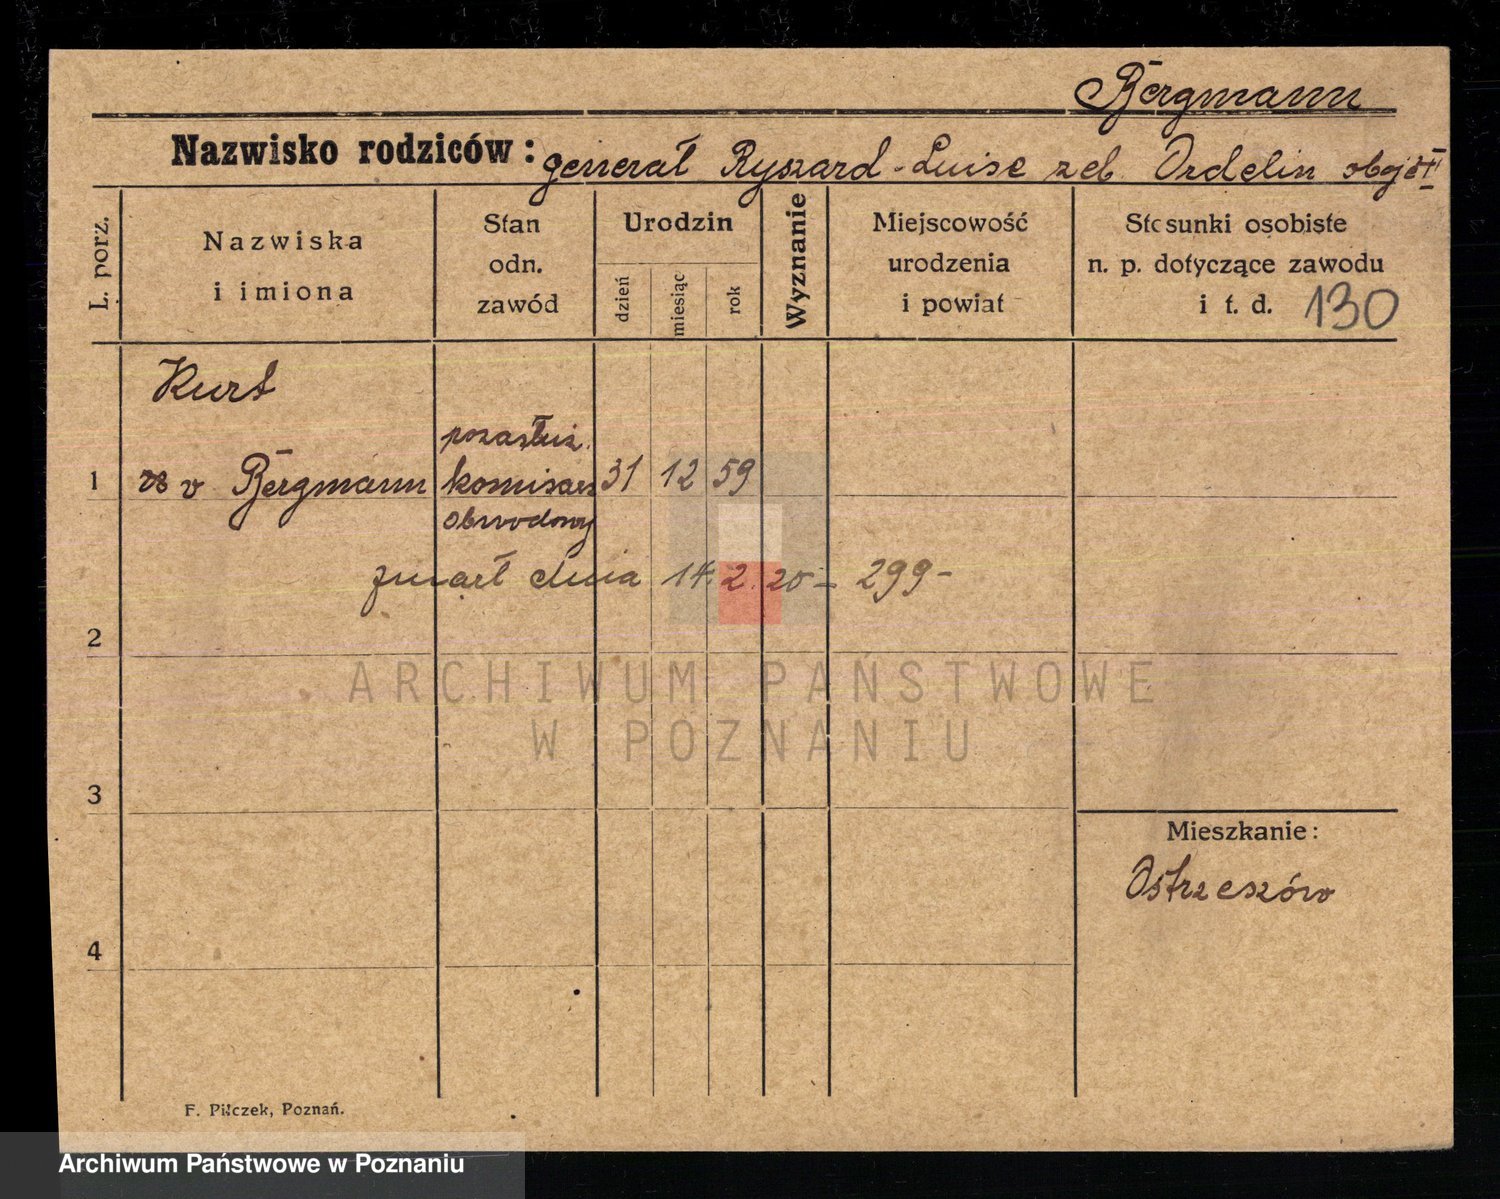 Bergmann
Nazwisko rodziców: generał Ryszard-Luise zeb. Ordelin oboje
L. porz.
Nazwiska
i imiona
Stan
odn.
zawód
Urodzin
dzień
miesiąc
rok
Wyznanie
Miejscowość
urodzenia
i powiat
Stosunki osobiste
n. p. dotyczące zawodu
i t. d. 130
Kurt
pozasłuż.
1 v Bergmann komisarz 31 12 59
obwodowy
zmarł dnia 14. 2. 20 - 299 -
2
3
Mieszkanie:
Ostrzeszów
4
F. Piłczek, Poznań.
ARCHIWUM PAŃSTWOWE
W POZNANIU
Archiwum Państwowe w Poznaniu